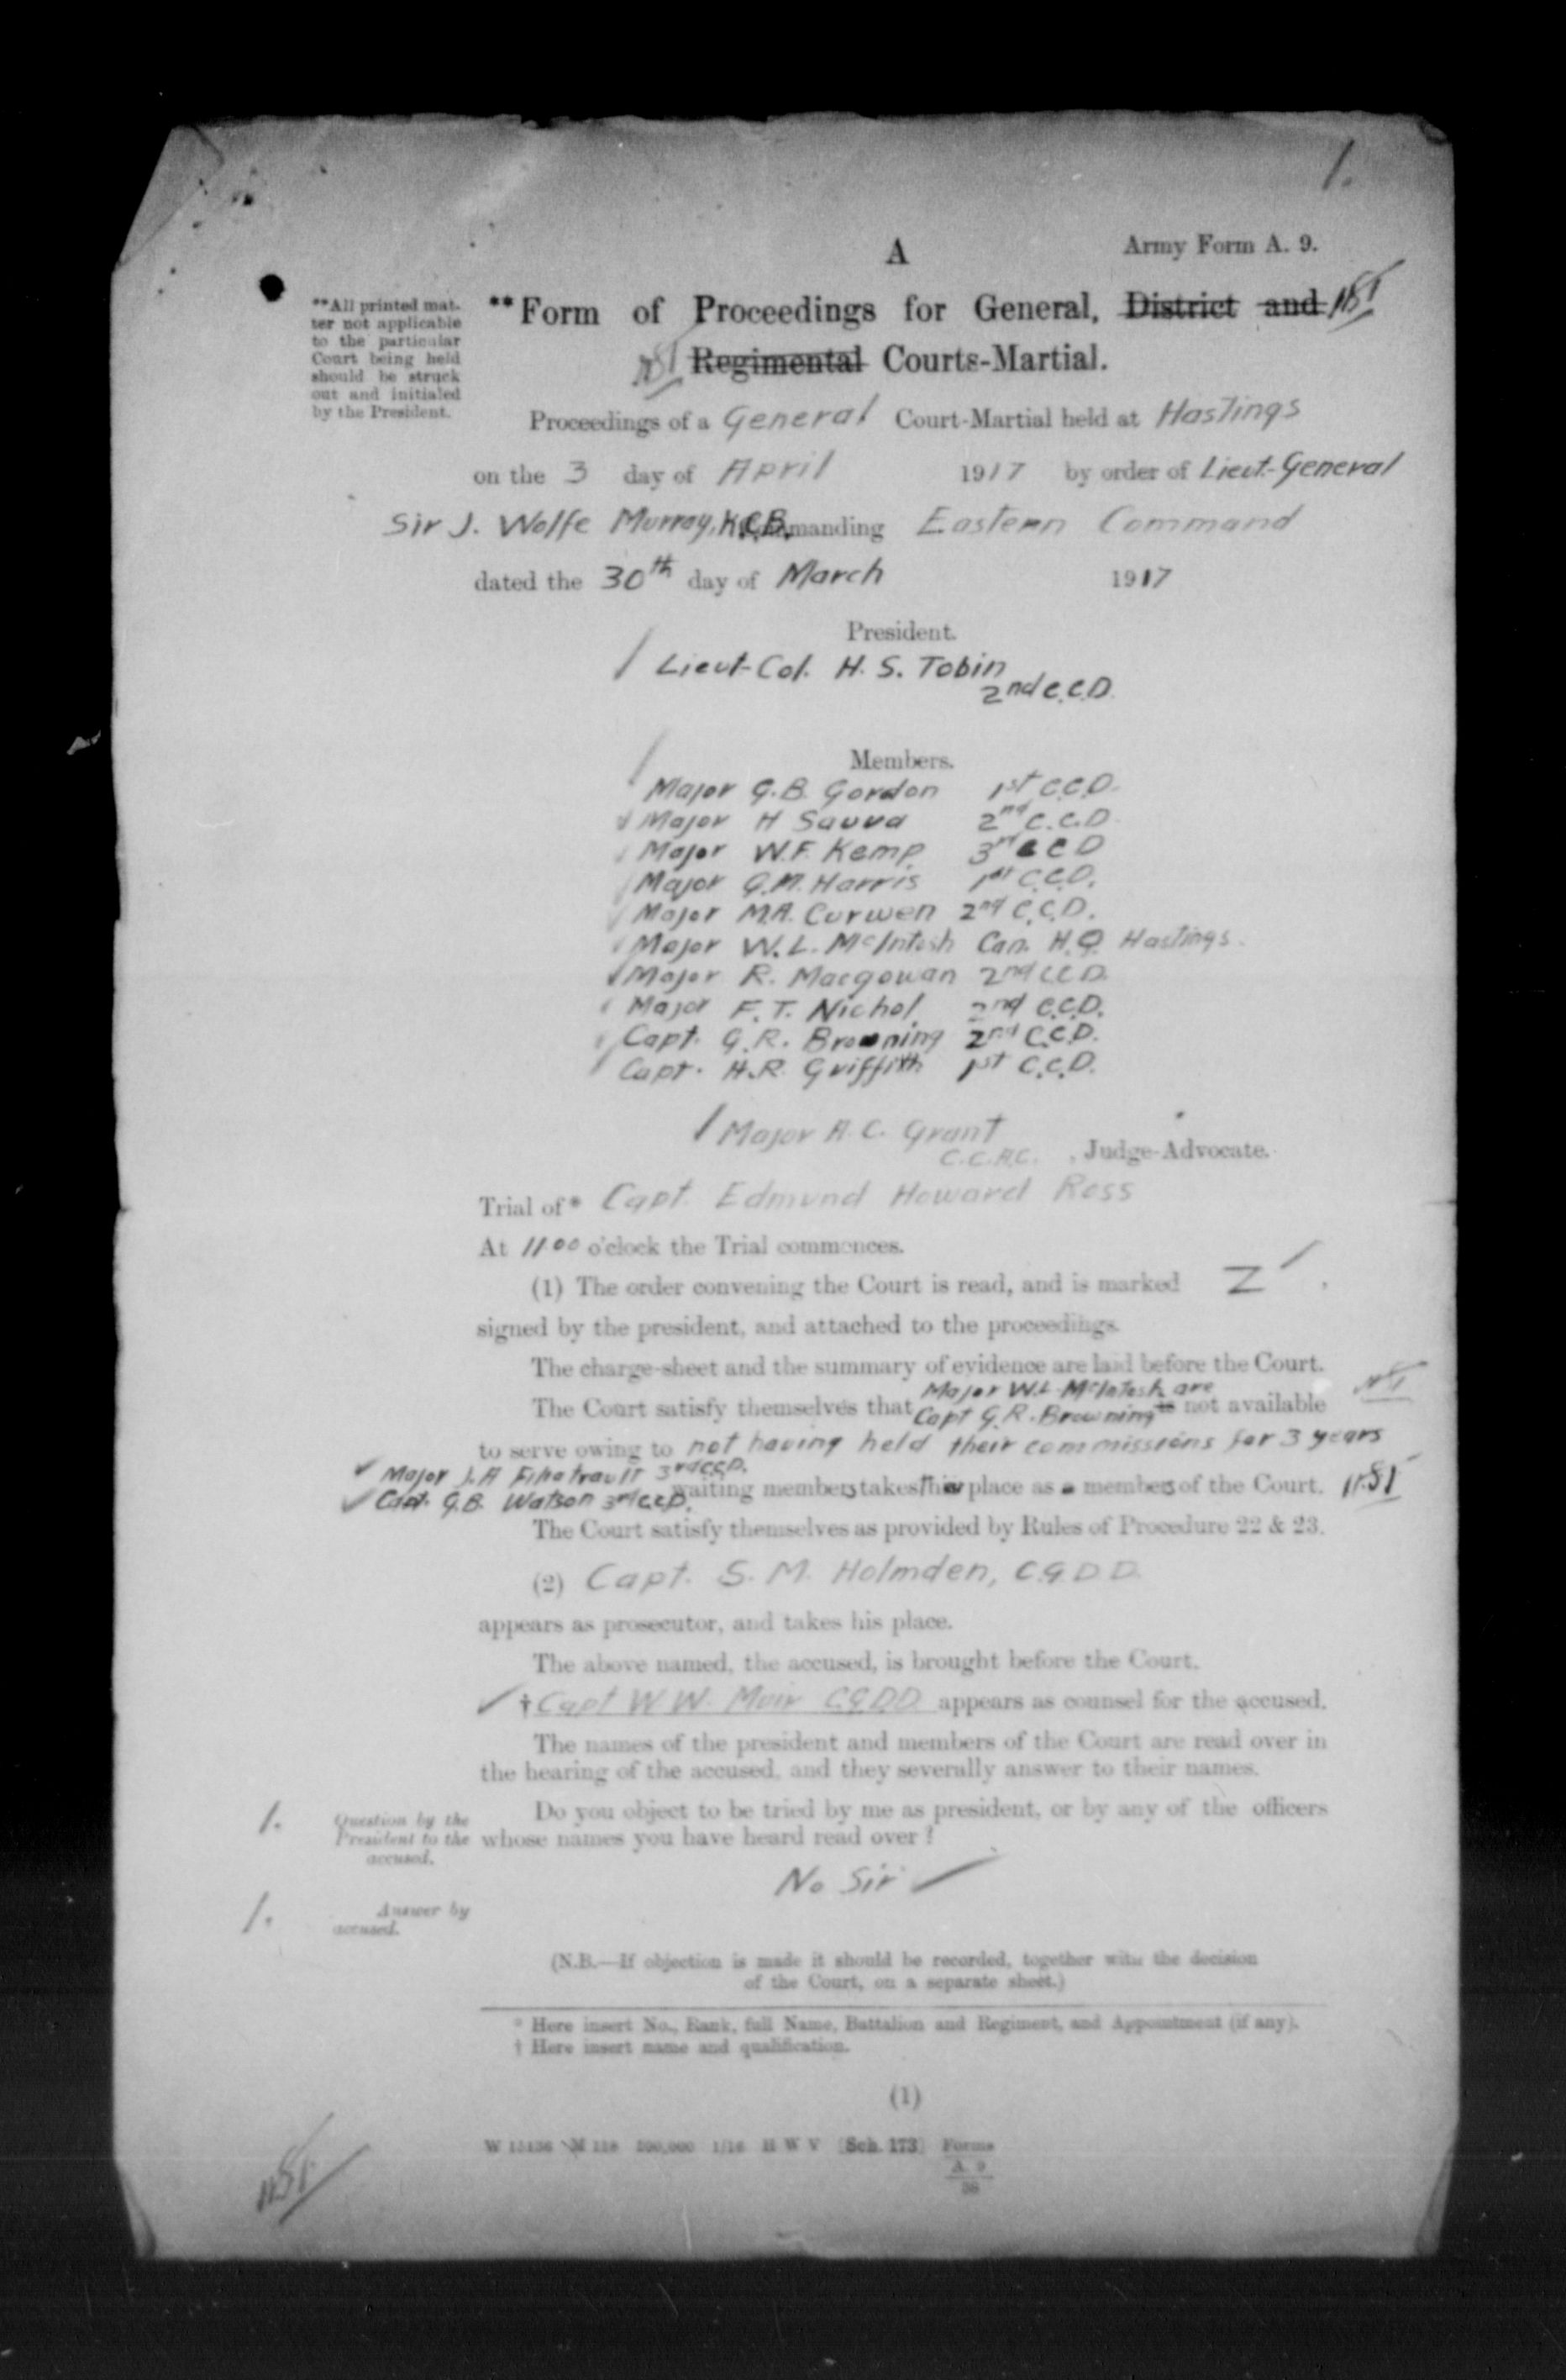 1.
A
Army Form A. 9.
**All printed mat-
ter not applicable
to the particular
Court being held
should be struck
out and initialed
by the President.
**Form of Proceedings for General, District and HST
HST Regimental Courts-Martial.
Proceedings of a General Court-Martial held at Hastings
on the 3 day of April 1917 by order of Lieut.-General
Sir J. Wolfe Murray, K.C.B. Commanding Eastern Command
dated the 30th day of March 1917
President.
Lieut-Col. H. S. Tobin
2nd C.C.D.
Members.
Major G.B. Gordon 1st C.C.D.
Major H Sauvd 2nd C.C.D
Major W.F. Kemp 3rd C C D
Major G.M. Harris 1st C.C.D.
Major M.A. Curwen 2nd C.C.D.
Major W.L. McIntosh Can. H.Q. Hastings.
Major R. Macgowan 2nd C.C.D.
Major F.T. Nichol 2nd C.C.D.
Capt. G.R. Browning 2nd C.C.D.
Capt. H.R. Griffith 1st C.C.D.
Major A.C. Grant
C.C.A.C. , Judge-Advocate.
Trial of* Capt. Edmund Howard Ross
At 11.00 o'clock the Trial commences.
(1) The order convening the Court is read, and is marked Z .
signed by the president, and attached to the proceedings.
The charge-sheet and the summary of evidence are laid before the Court.
Major W.L McIntosh are HST
The Court satisfy themselves that Capt G.R. Browning is not available
to serve owing to not having held their commissions for 3 years
Major J.A Filiatrault 3rd C.C.D.
Capt. G.B. Watson 3rd C.C.D. waiting members takes their place as a members of the Court. HST
The Court satisfy themselves as provided by Rules of Procedure 22 & 23.
(2) Capt. S. M. Holmden, C.G.D.D.
appears as prosecutor, and takes his place.
The above named, the accused, is brought before the Court.
†Capt W.W. Muir C.G.D.D. appears as counsel for the accused.
The names of the president and members of the Court are read over in
the hearing of the accused, and they severally answer to their names.
1. Question by the
President to the
accused.
Do you object to be tried by me as president, or by any of the officers
whose names you have heard read over?
No Sir
1. Answer by
accused.
(N.B.—If objection is made it should be recorded, together with the decision
of the Court, on a separate sheet.)
* Here insert No., Rank, full Name, Battalion and Regiment, and Appointment (if any).
† Here insert name and qualification.
(1)
W 13436 M 118 500,000 1/16 H W V (Sch. 173) Forms
A. 9
HST